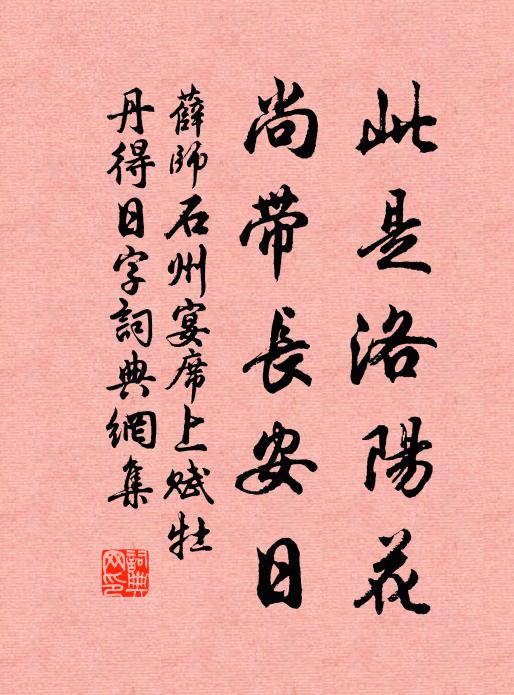 此是洛陽花
尚带長安日
薛師石州宴席上赋牡
丹得日字詞典網集
詞典網印